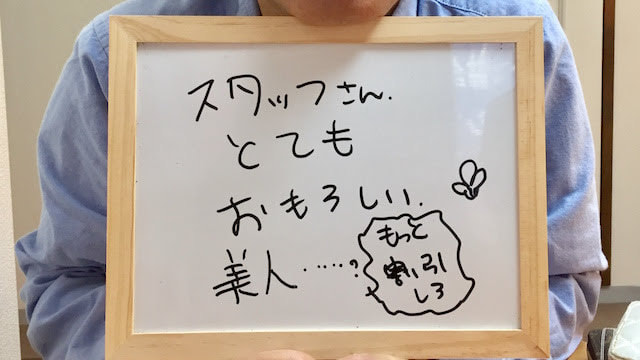 スタッフさん.
とても
おもろしい.
美人……?
もっと
割引
しろ